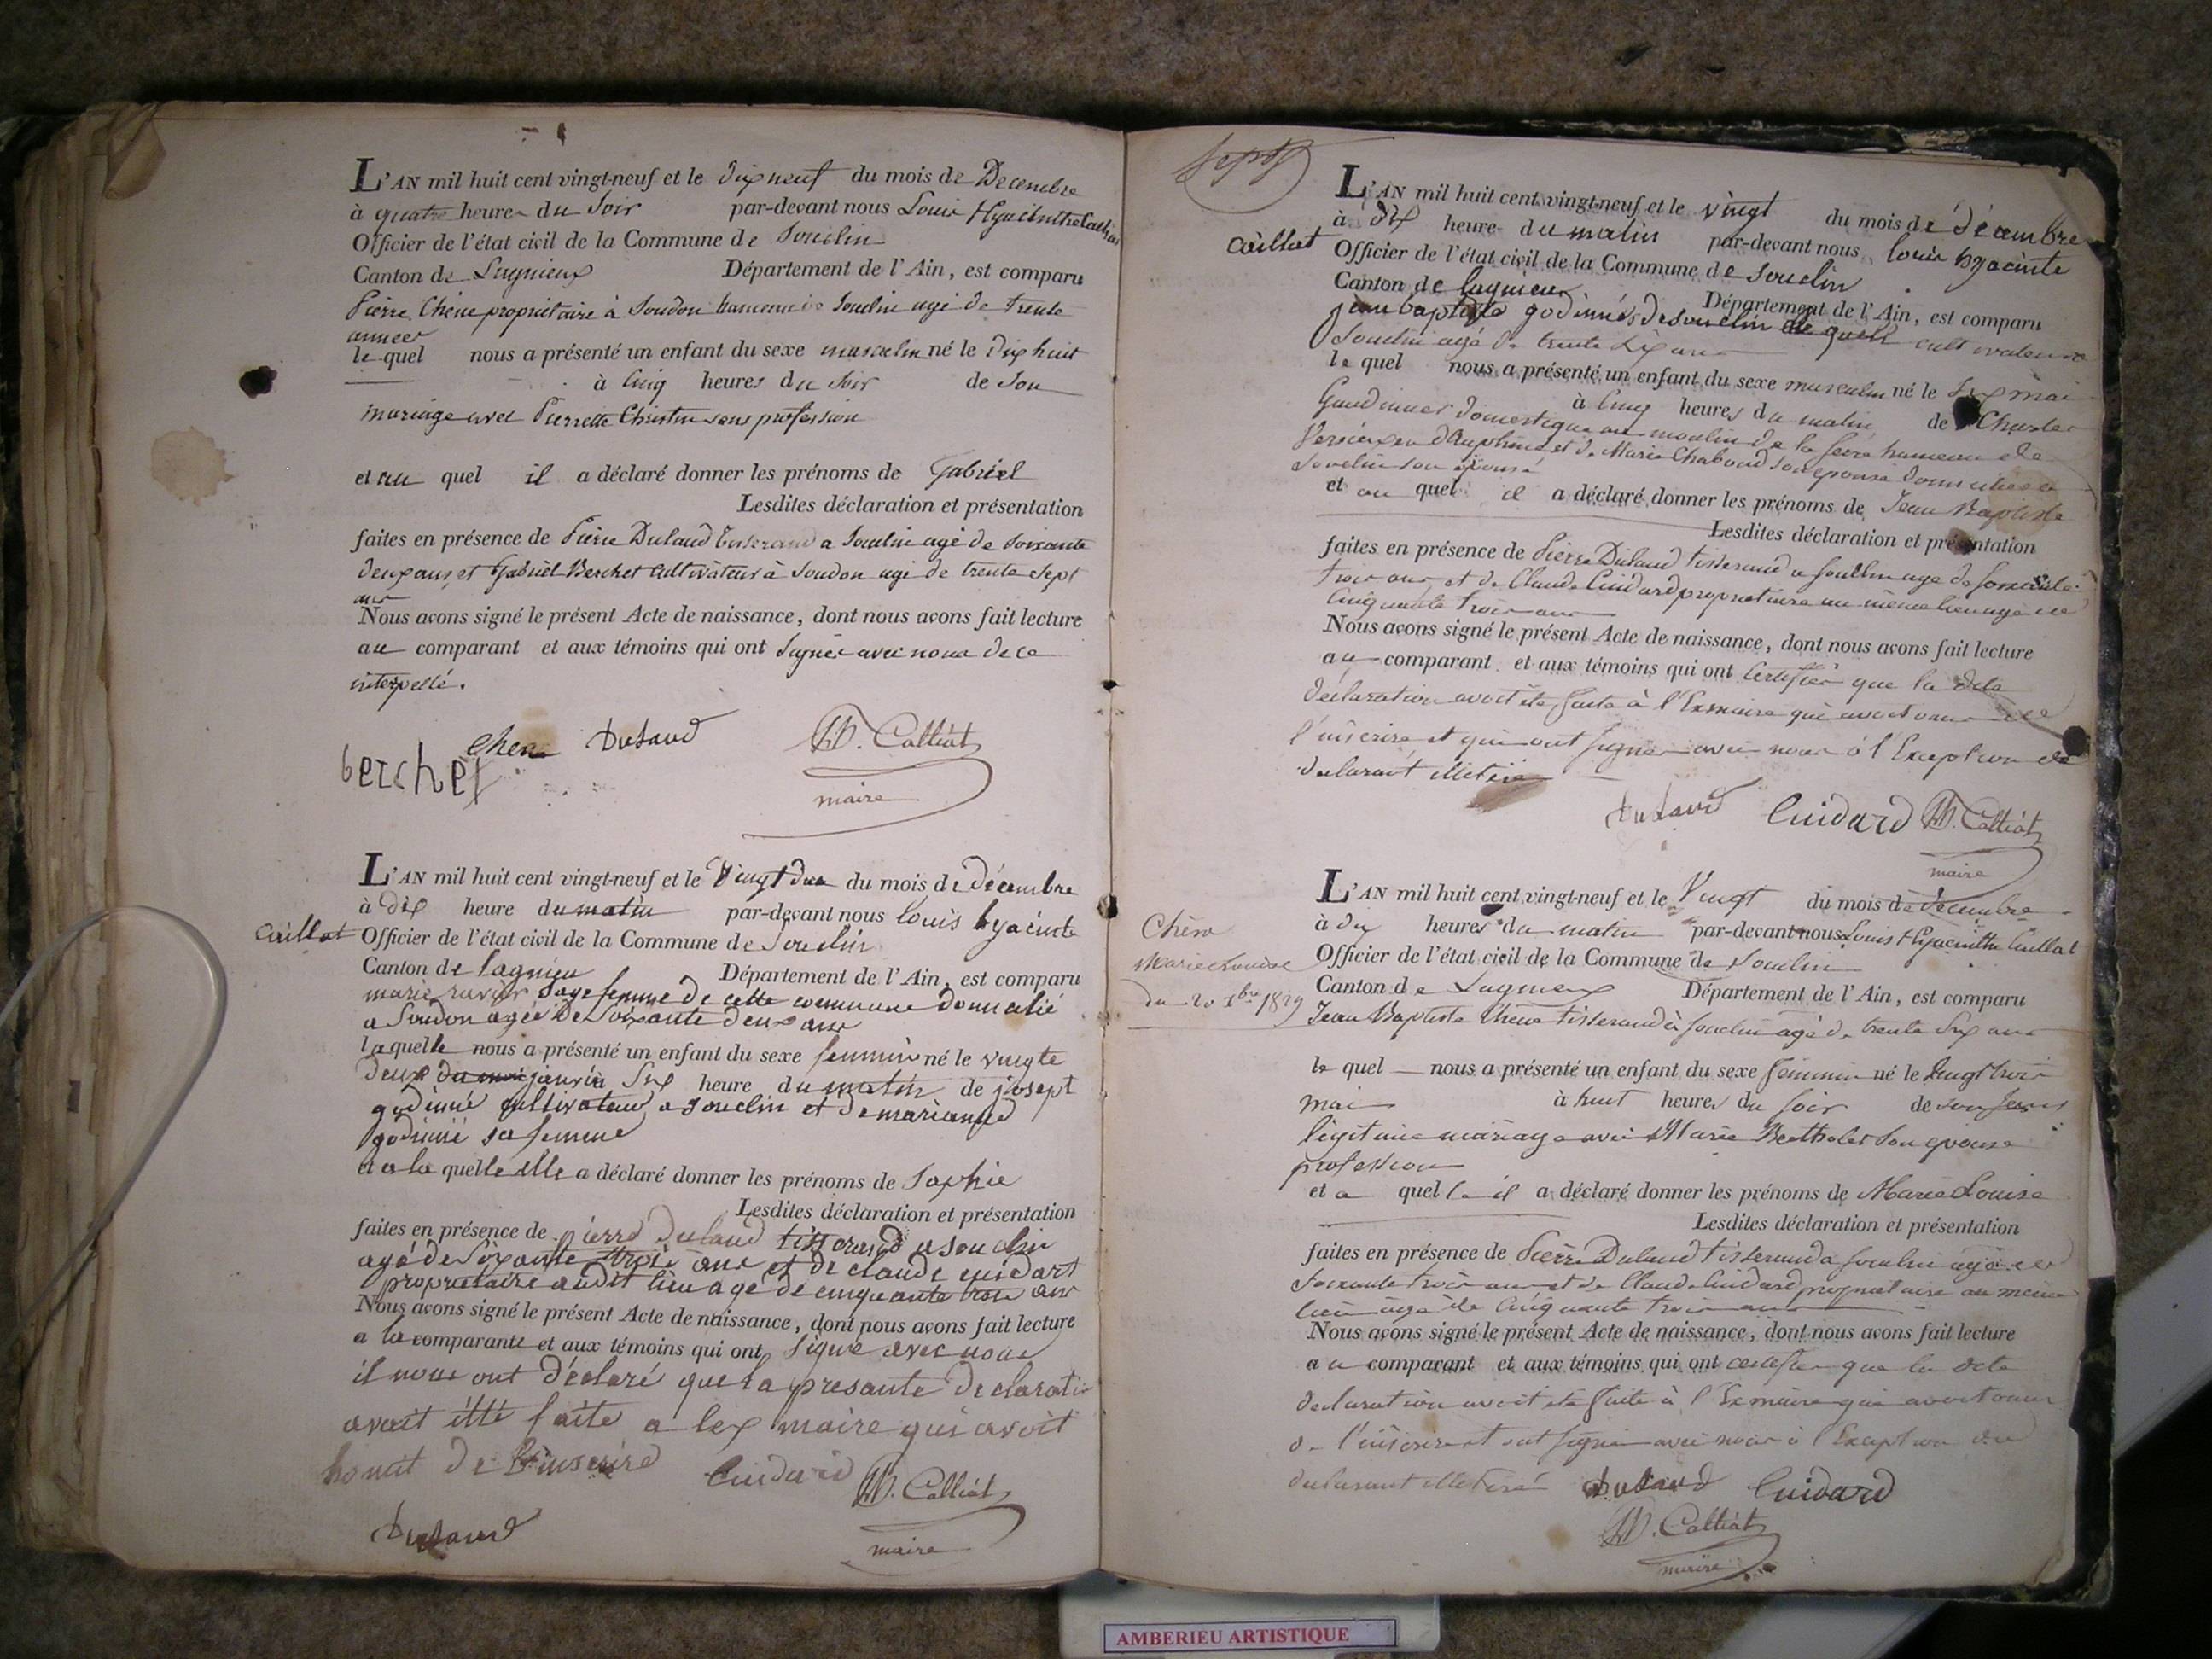 L'AN mil huit cent vingt-neuf et le dix neuf du mois de Decembre
à quatre heure du Soir par-devant nous Louis Hyacinthe
Officier de l'état civil de la Commune de Souclin
Canton de Lagnieux Département de l'Ain, est comparu
Pierre Chêne propriétaire à Soudon hameau de Souclin agé de trente
annees
le quel nous a présenté un enfant du sexe masculin né le dix huit
à Cinq heures du Soir de Son
mariage avec Pierrette Christin sans profession
et au quel il a déclaré donner les prénoms de Gabriel
Lesdites déclaration et présentation
faites en présence de Pierre Dulaud tisserand a Souclin agé de soixante
deux ans et Gabriel Berchet Cultivateur à Soudon agé de trente Sept
ans
Nous avons signé le présent Acte de naissance, dont nous avons fait lecture
au comparant et aux témoins qui ont Signés avec nous de ce
interpellé.
Chene Dulaud M. Calliat
berchet
maire
L'AN mil huit cent vingt-neuf et le Vingt du mois de décembre
à dix heure du matin par-devant nous louis hyacinte
Caillat Officier de l'état civil de la Commune de Souclin
Canton de lagnieu Département de l'Ain, est comparu
marie ravier Sage femme de cette commune domicilié
a Soudon agée de Soixante deux ans
laquelle nous a présenté un enfant du sexe feminin né le vingte
deux du moi janvier à Six heure du matin de josept
godinié cultivateur a souclin et de marianne
godinié sa femme
et a la quelle elle a déclaré donner les prénoms de Sophie
Lesdites déclaration et présentation
faites en présence de pierre dulaud tisserand a souclin
agé de Soixante trois ans et de claude cuidart
propriétaire audit lieu agé de cinquante trois ans
Nous avons signé le présent Acte de naissance, dont nous avons fait lecture
a la comparante et aux témoins qui ont signé avec nous
il nous ont déclaré que la presante declaration
avoit étté faite a lex maire qui avoit
de l'inscrire Cuidard M. Calliat
Dulaud
maire
L'AN mil huit cent vingt-neuf et le vingt du mois de décembre
à dix heure du matin par-devant nous louis hyacinte
Caillat Officier de l'état civil de la Commune de Souclin
Canton de lagnieux Département de l'Ain, est comparu
jean baptiste godinnés de souclin cultivateur
Souclin agé de trente six ans
le quel nous a présenté un enfant du sexe masculin né le Six mai
à Cinq heures du matin de Charles
Gaudinnes domestique au moulin de la serra hameau de
et de Marie Chaboud son epouse
Souclin son épouse
et au quel il a déclaré donner les prénoms de Jean Baptiste
Lesdites déclaration et présentation
faites en présence de Pierre Dulaud tisserand a Souclin age de soixante
trois ans et de Claude Cuidard propriétaire au même lieu agé de
Cinquante trois ans
Nous avons signé le présent Acte de naissance, dont nous avons fait lecture
au comparant et aux témoins qui ont Certifié que la dite
déclaration avoit été faite à l'Exmaire qui avoit omis de
l'inscrire et qui ont signer avec nous à l'Exception du
declarant
Dulaud Cuidard M. Calliat
maire
L'AN mil huit cent vingt-neuf et le Vingt du mois de décembre
Chêne
Marie Louise
du 20 Xbre 1829
à dix heures du matin par-devant nous Louis Hyacinthe Caillat
Officier de l'état civil de la Commune de Souclin
Canton de Lagnieux Département de l'Ain, est comparu
Jean Baptiste Chêne tisserand à Souclin agé de trente Six ans
le quel nous a présenté un enfant du sexe feminin né le Vingt trois
mai à huit heures du soir de son
légitime mariage avec Marie Berthelet son epouse
profession
et a quelle il a déclaré donner les prénoms de Marie Louise
Lesdites déclaration et présentation
faites en présence de Pierre Dulaud tisserand a Souclin agé de
Soixante trois ans et de Claude Cuidard propriétaire au même
lieu agé de Cinquante trois ans
Nous avons signé le présent Acte de naissance, dont nous avons fait lecture
au comparant et aux témoins qui ont certifier que la dite
declaration avoit été faite à l'Exmaire qui avoit omis
de l'inscrire et ont signé avec nous à l'Exception du
declarant Dulaud Cuidard
M. Calliat
maire
AMBERIEU ARTISTIQUE